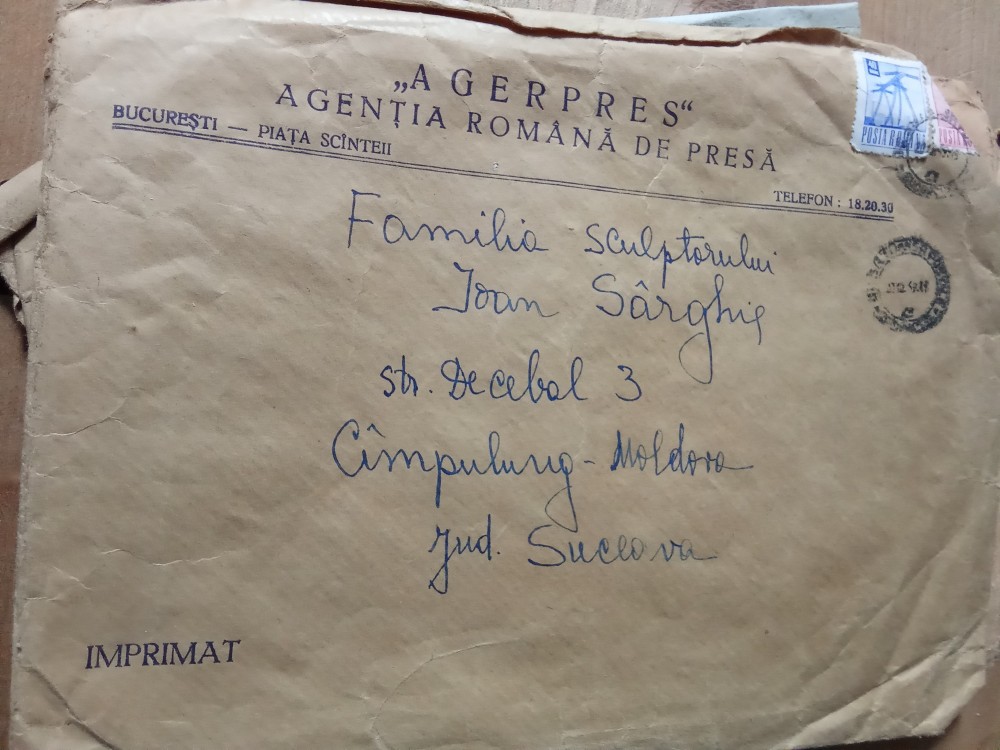 „AGERPRES“
AGENȚIA ROMÂNĂ DE PRESĂ
BUCUREȘTI — PIAȚA SCÎNTEII
TELEFON : 18.20.30
POSTA
Familia sculptorului
Ioan Sârghie
str. Decebal 3
Cîmpulung-Moldova
Jud. Suceava
IMPRIMAT